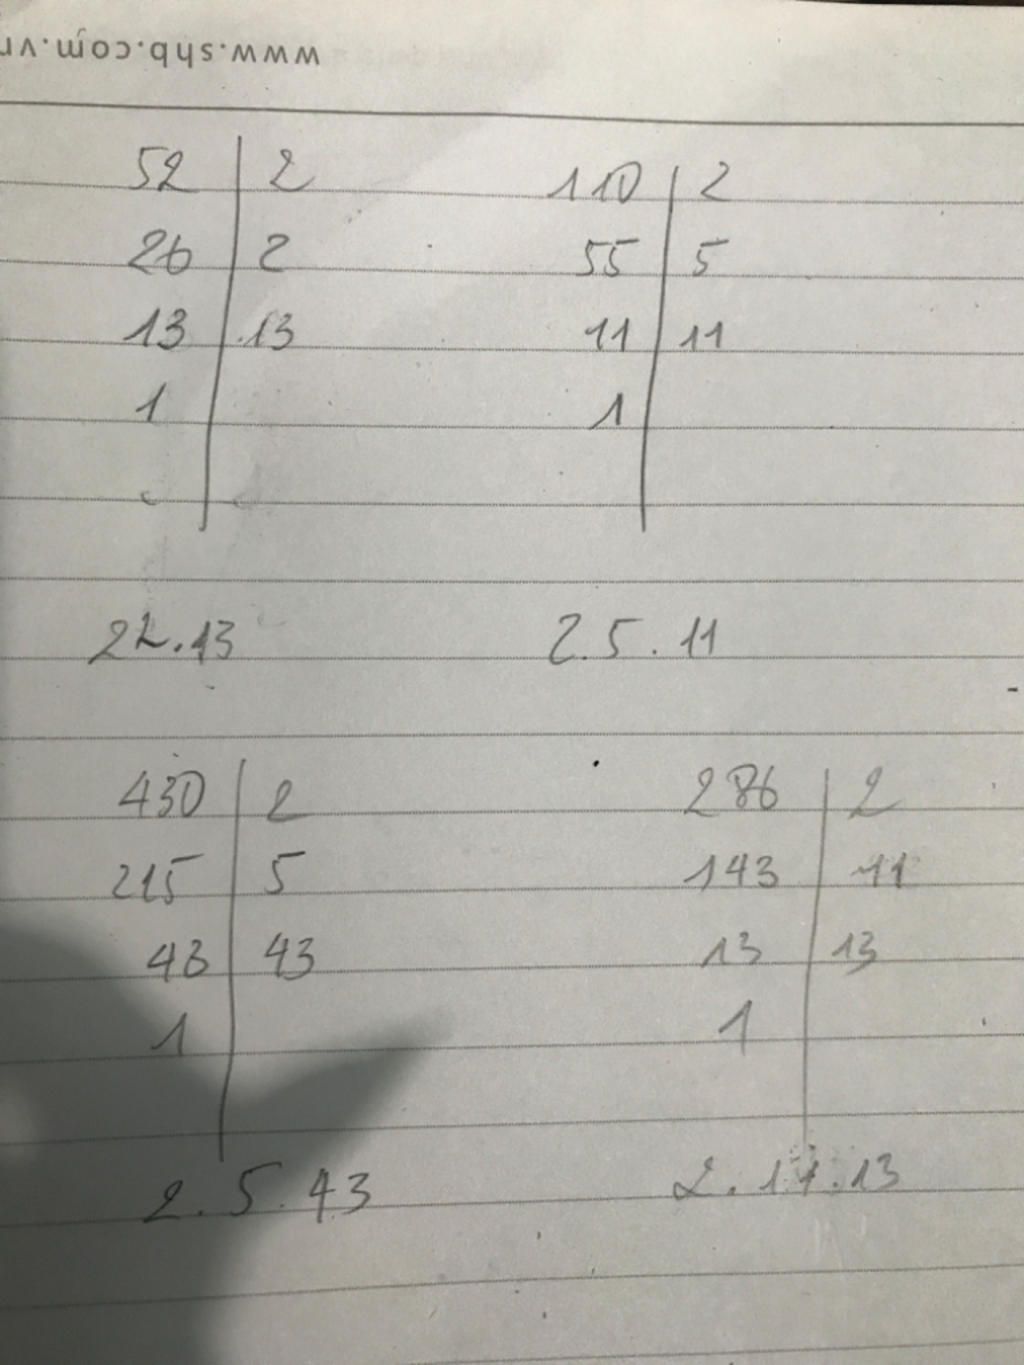 www.shb.com.vn
52 | 2
26 | 2
13 | 13
1 |
22.13
110 | 2
55 | 5
11 | 11
1 |
2.5.11
430 | 2
215 | 5
43 | 43
1 |
2.5.43
286 | 2
143 | 11
13 | 13
1 |
2.11.13